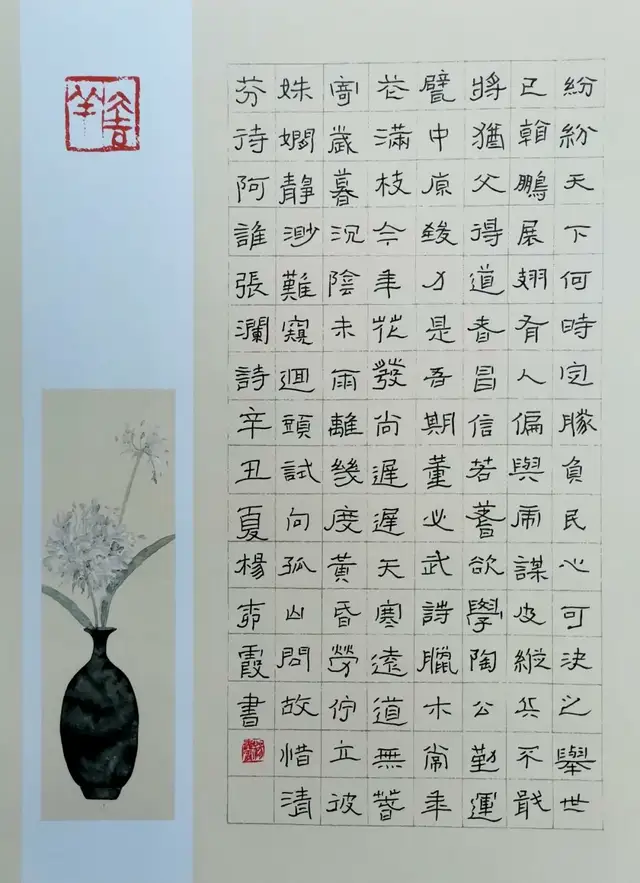 紛紛天下何時定勝負民心可決之舉世
已翰鵬展翅有人偏與虎謀皮縱兵不戢
將猶父得道者昌信若蓍欲學陶公勤運
甓中原致力是吾期董必武詩臘木常年
花滿枝今年花發尚遲遲天寒遠道無
寄歲暮沉陰未雨離幾度黃昏勞佇立彼
姝嫺靜渺難窺迴頭試向孤山問故惜清
芬待阿誰張瀾詩辛丑夏楊霞書